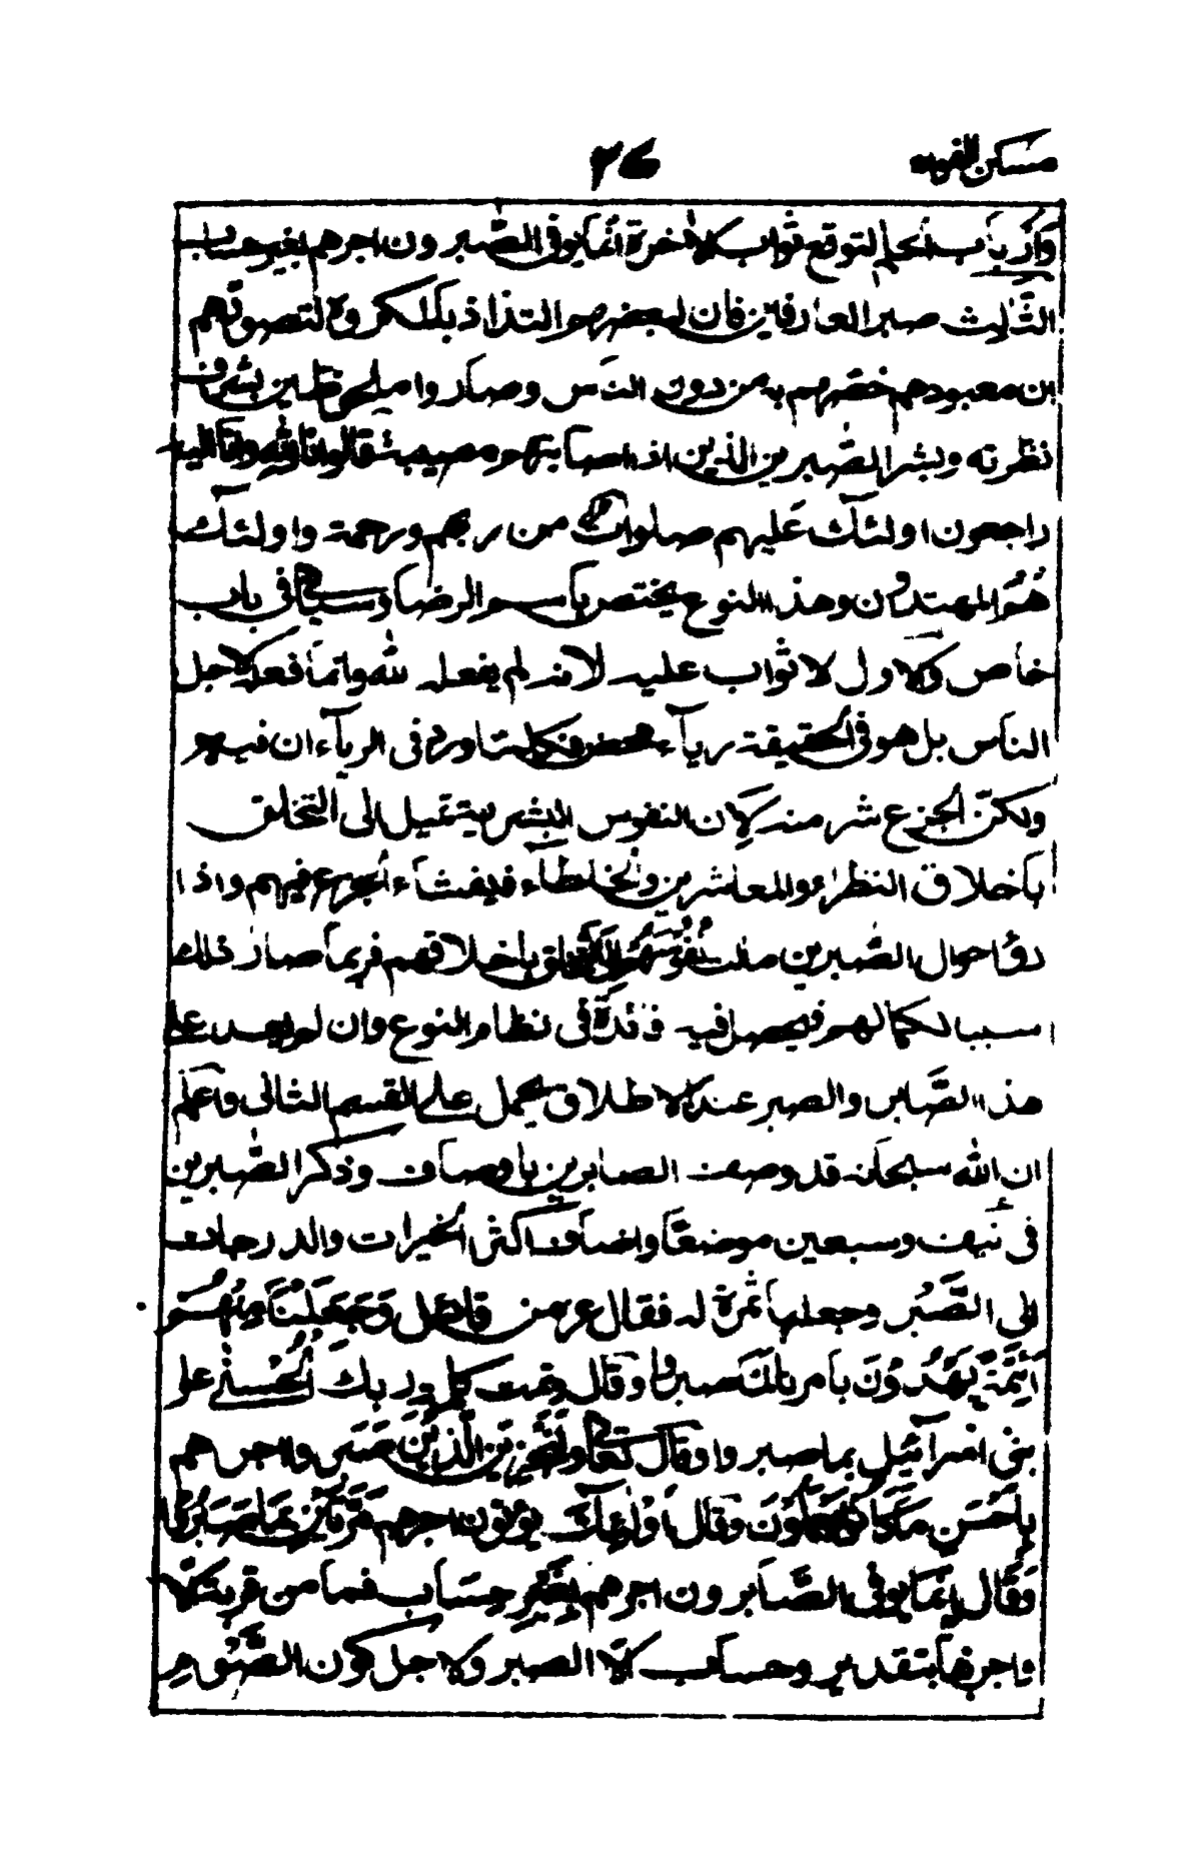 مسكن الفواد
٣٤
وارباب الحلم لتوقع ثواب الاخرة انما يوفى الصّبرون اجرهم بغير حساب
الثّالث صبر العارفين فان لبعضهم التذاذ بالمكروه لتصوّرهم
ان معبودهم خصّهم به من دون النّاس وصاروا ملحوظين بشرف
نظرته وبشر الصّبرين الذين اذا اصابتهم مصيبة قالوا انا لله وانا اليه
راجعون اولئك عليهم صلوات من ربهم ورحمة واولئك
هُمُ المهتدون وهذا النوع يختص باسم الرضا وسياتى فى باب
خاص والاول لا ثواب عليه لانه لم يفعله لله وانما فعله لاجل
النّاس بل هو فى الحقيقة رياء محض فكلما ورد فى الرياء ات فيه
ولكن الجزع شر منه لان النفوس البشرية تميل الى التخلق
باخلاق النظراء والمعاشرين والخلطاء فيفشاء الجزع فيهم واذا
رؤا احوال الصّبرين مالت نفوسهم الى التخلق باخلاقهم فربما صار ذلك
سببا لكمالهم فيحصل فيه فائدة فى نظام النوع وان لم يعد على
هذا الصّابر والصبر عند الاطلاق يحمل على القسم الثانى واعلم
ان الله سبحانه قد وصف الصابرين باوصاف وذكر الصّبرين
فى نيّف وسبعين موضعًا واضاف اكثر الخيرات والدرجات
الى الصَّبْر وجعلها ثمرة له فقال عز من قائل وَجَعَلْنَا مِنْهُمْ
اَئِمَّةً يَهْدُوْنَ بامرنا لَمَّا صبروا وقال وتمت كلمة ربك الْحُسْنٰى على
بنى اسرآئيل بما صبروا وقال تعالى ولنجزين الّذين صَبَروا اجرهم
بِاَحْسَنِ مَا كَانُوْا يَعْمَلُوْنَ وقال اُولٰئِكَ يؤتون اجرهم مَرَّتَيْنِ بِمَا صَبَرُوْا
وَقَال اِنّما يوفى الصَّابرون اجرهم بِغَيْرِ حِسَاب فما من قربة الا
واجرها بتقدير وحساب الا الصبر ولاجل كون الصَّوْم